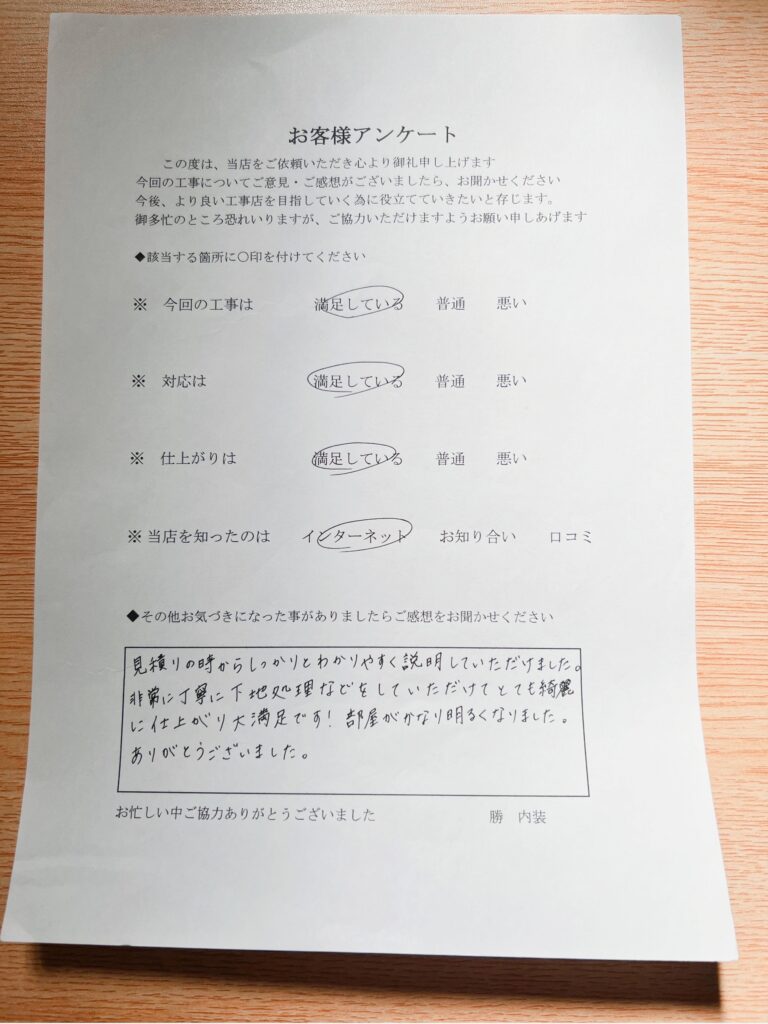 お客様アンケート
この度は、当店をご依頼いただき心より御礼申し上げます
今回の工事についてご意見・ご感想がございましたら、お聞かせください
今後、より良い工事店を目指していく為に役立てていきたいと存じます。
御多忙のところ恐れいりますが、ご協力いただけますようお願い申しあげます
◆該当する箇所に〇印を付けてください
※ 今回の工事は 満足している 普通 悪い
※ 対応は 満足している 普通 悪い
※ 仕上がりは 満足している 普通 悪い
※当店を知ったのは インターネット お知り合い 口コミ
◆その他お気づきになった事がありましたらご感想をお聞かせください
見積りの時からしっかりとわかりやすく説明していただけました。
非常に丁寧に下地処理などをしていただけてとても綺麗
に仕上がり大満足です! 部屋がかなり明るくなりました。
ありがとうございました。
お忙しい中ご協力ありがとうございました 勝 内装